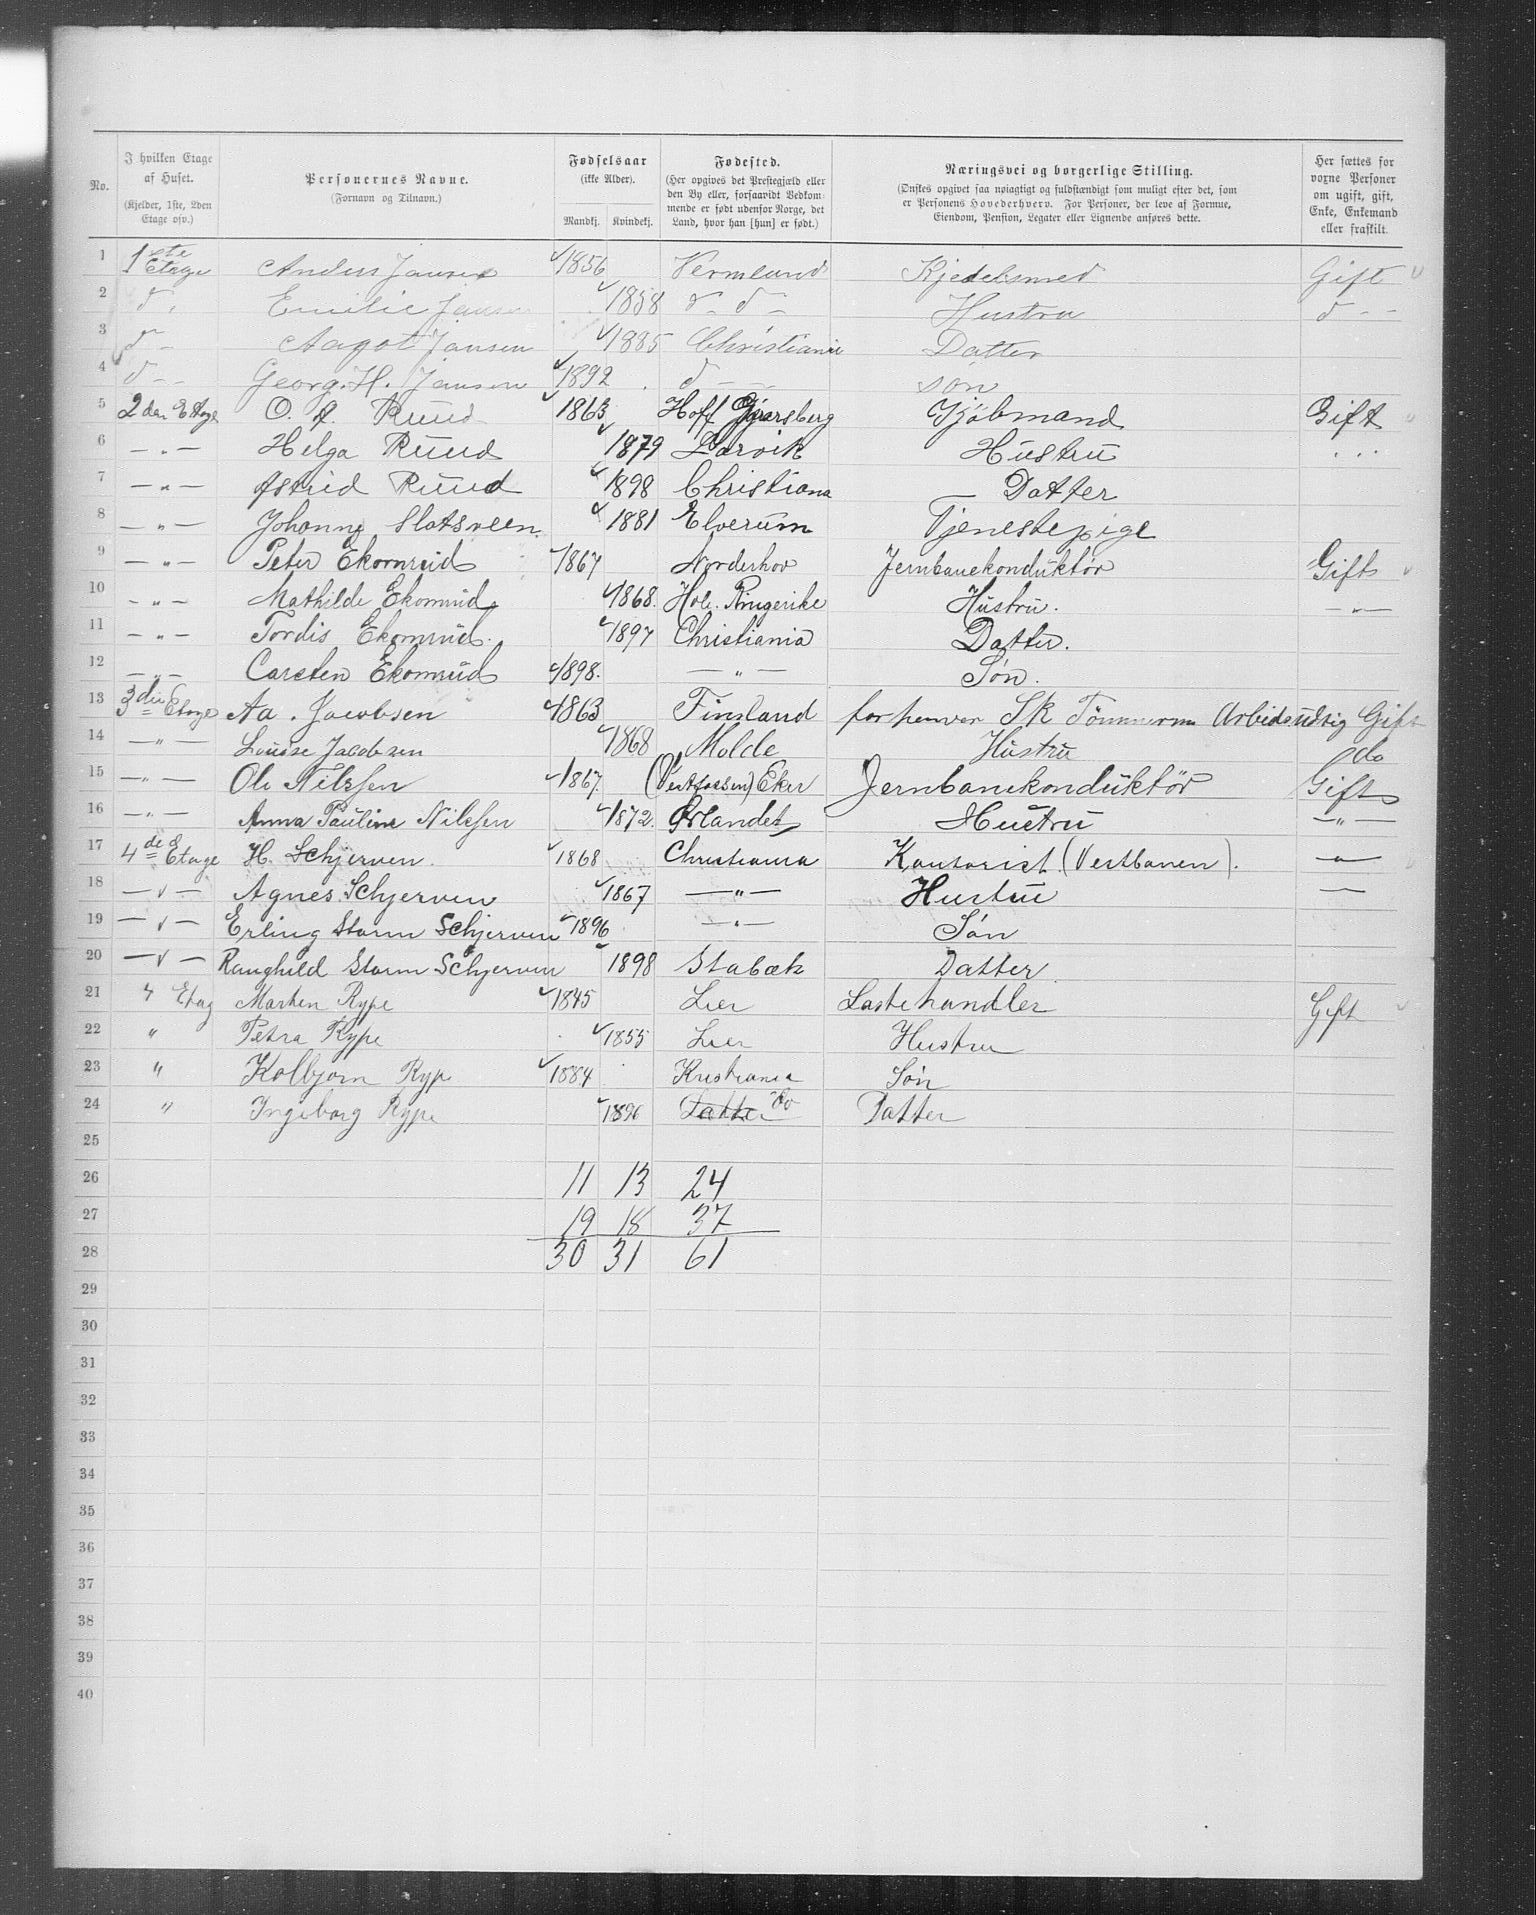 No. I hvilken Etage af Huset. (Kjelder, 1ste, 2den Etage osv.) Personernes Navne. (Fornavn og Tilnavn.) Fødselsaar (ikke Alder). Mandkj. Kvindekj. Fødested. (Her opgives det Prestegjæld eller den By eller, forsaavidt Vedkommende er født udenfor Norge, det Land, hvor han [hun] er født.) Næringsvei og borgerlige Stilling. (Ønskes opgivet saa nøiagtigt og fuldstændigt som muligt efter det, som er Personens Hovederhverv. For Personer, der leve af Formue, Eiendom, Pension, Legater eller Lignende anføres dette. Her sættes for voxne Personer om ugift, gift, Enke, Enkemand eller fraskilt.
1 1ste Etage Anders Jansen 1856 Vermland Kjedelsmed Gift
2 d - Emilie Jansen 1858 d - d - Hustru d - -
3 d - Aagot Jansen 1885 Christiania Datter
4 d - - Georg. H. Jansen 1892 d - - søn
5 2den Etage O. A. Ruud 1863 Hoff Jarlsberg Kjøbmand Gift
6 - " - Helga Ruud 1879 Larvik Hustru " "
7 - " - Astrid Ruud 1898 Christiana — Datter
8 - " - Johanne Slotsveen 1881 Elverum Tjenestepige
9 - " - Peter Ekornrud 1867 Norderhov Jernbanekonduktør Gift
10 - " - Mathilde Ekornrud 1868. Hole. Ringerike Hustru. - " -
11 - " - Tordis Ekornrud. 1897 Christiania Datter.
12 - " - Carsten Ekornrud 1898. - " - Søn.
13 3die Etage Aa. Jacobsen 1863 Finsland forhenver Sk Tömmerm Arbidsudsig Gift
14 - " - Louise Jacobsen 1868 Molde Hustru do
15 - " - Ole Nilssen 1867. (Vestfossen) Eker Jernbanekonduktör Gift
16 - " - Anna Pauline Nilssen 1872. Ørlandet Hustru - " -
17 4de Etage H. Schjerven. 1868 Christiania Kontorist. (Vestbanen). - " -
18 - v - Agnes Schjerven 1867 - " - Hustru —
19 - v - Erling Storm Schjerven 1896 - " - Søn
20 - v - Ranghild Storm Schjerven 1898 Stabæk Datter
21 4 Etag Marten Rype 1845 Lier Lastehandler Gift
22 " Petra Rype 1855 Lier Hustru
23 " Kolbjorn Ryp 1884 Kristiania Søn
24 " Ingeborg Rype 1890 Datter do Datter
25
26 11 13 24
27 19 18 37
28 30 31 61
29
30
31
32
33
34
35
36
37
38
39
40